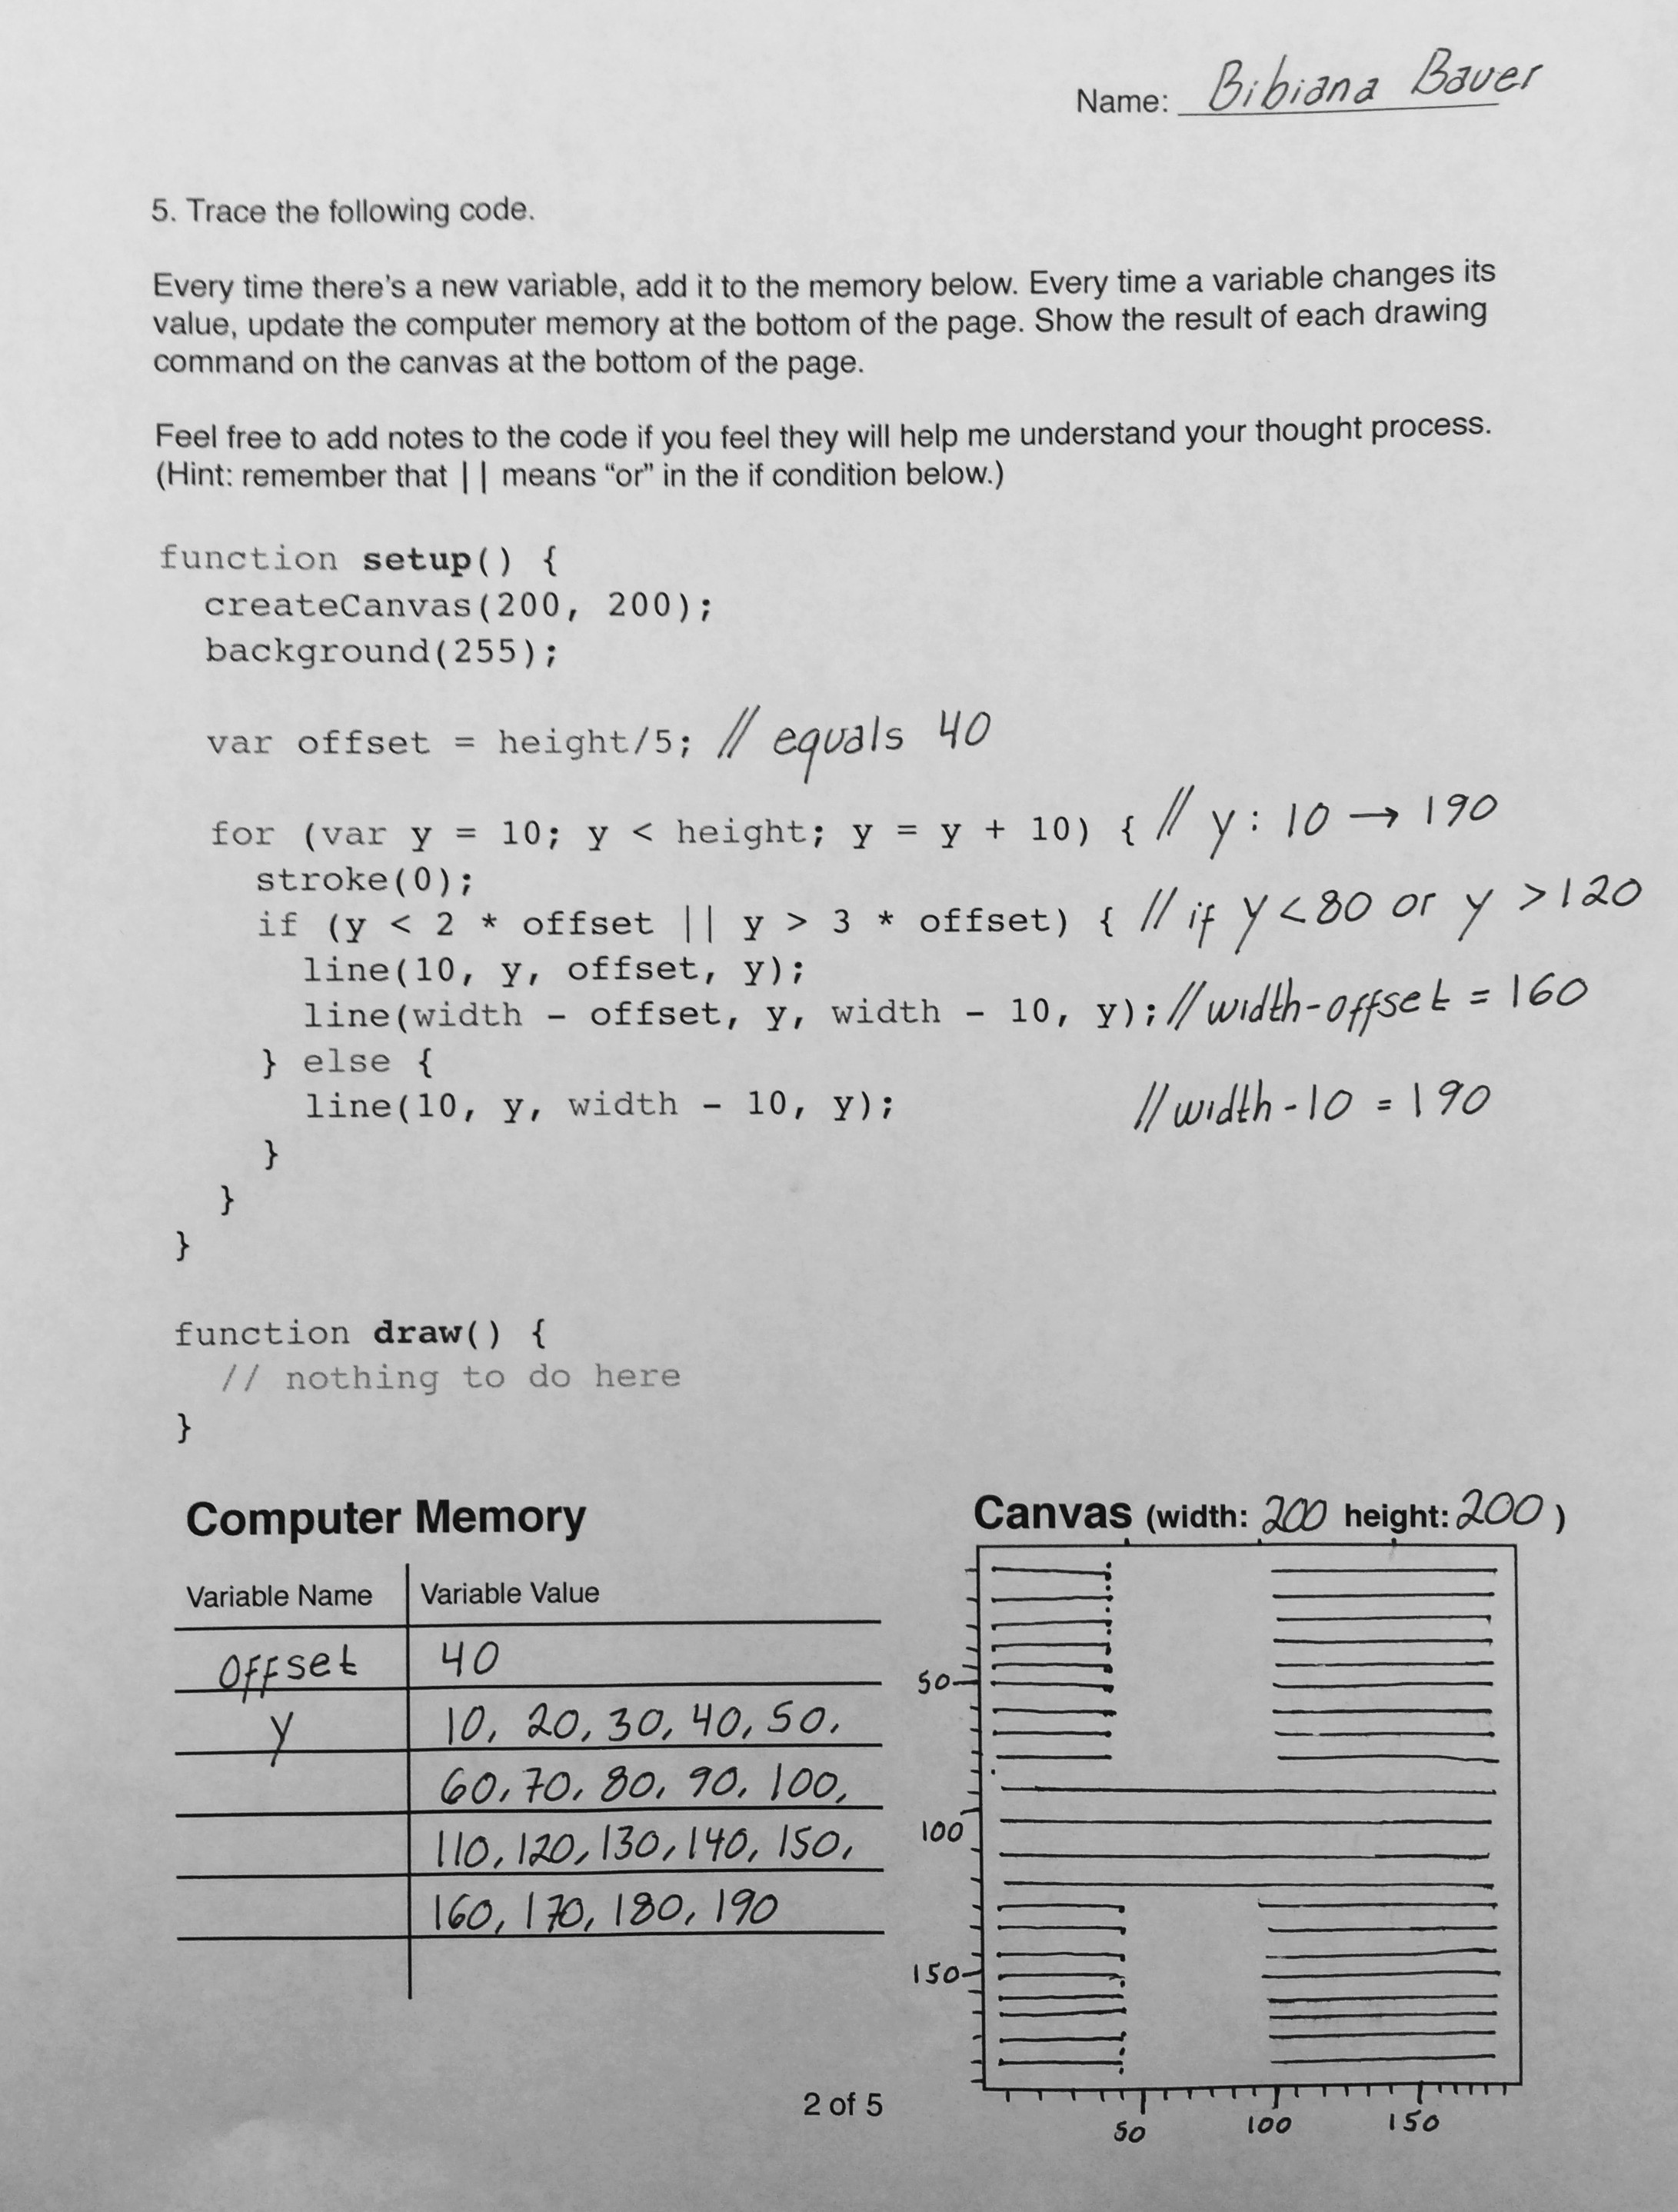 Name: Bibiana Bauer
5. Trace the following code.
Every time there's a new variable, add it to the memory below. Every time a variable changes its
value, update the computer memory at the bottom of the page. Show the result of each drawing
command on the canvas at the bottom of the page.
Feel free to add notes to the code if you feel they will help me understand your thought process.
(Hint: remember that || means “or” in the if condition below.)
function setup() {
createCanvas(200, 200);
background(255);
var offset = height/5; // equals 40
for (var y = 10; y < height; y = y + 10) { // y: 10 → 190
stroke(0);
if (y < 2 * offset || y > 3 * offset) { // if y < 80 or y > 120
line(10, y, offset, y);
line(width - offset, y, width - 10, y); // width-offset = 160
} else {
line(10, y, width - 10, y); // width-10 = 190
}
}
}
function draw() {
// nothing to do here
}
Computer Memory
Variable Name Variable Value
offset 40
y 10, 20, 30, 40, 50,
60, 70, 80, 90, 100,
110, 120, 130, 140, 150,
160, 170, 180, 190
Canvas (width: 200 height: 200)
50
100
150
50 100 150
2 of 5